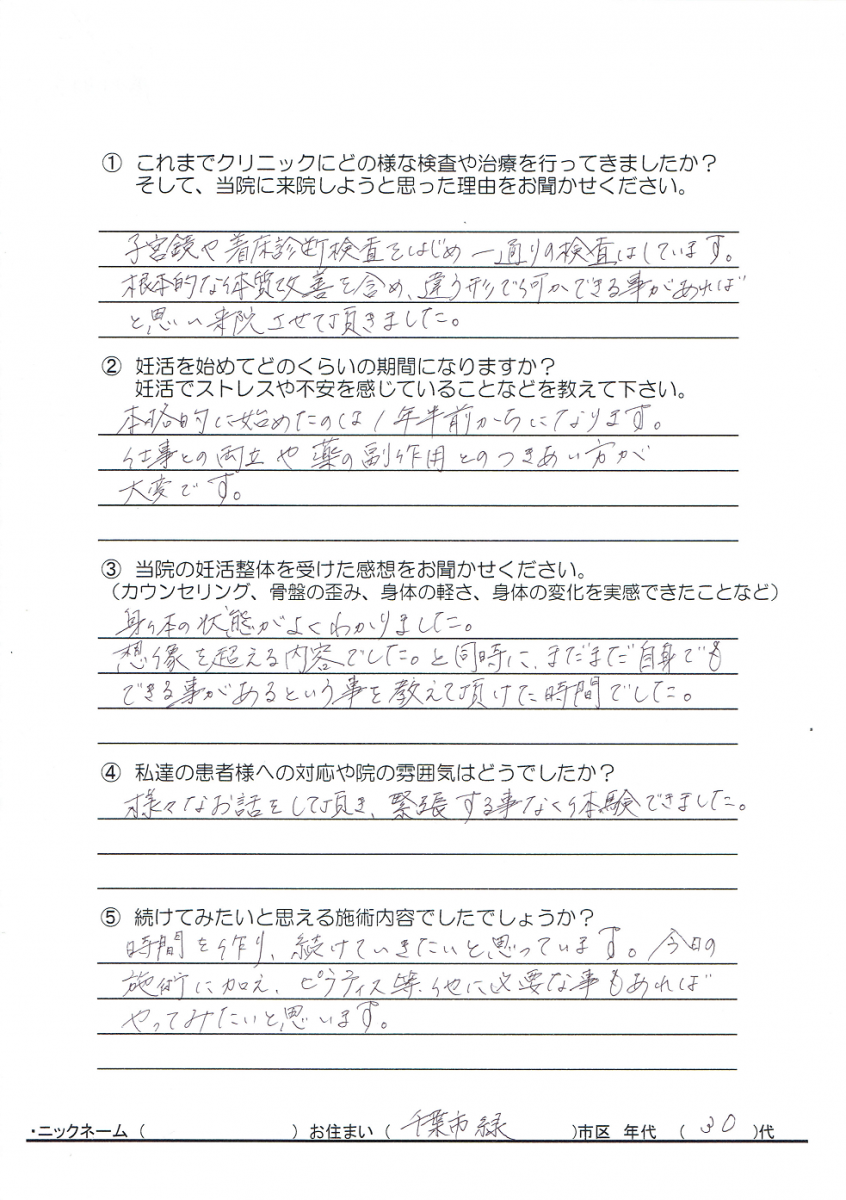 ① これまでクリニックにどの様な検査や治療を行ってきましたか？
そして、当院に来院しようと思った理由をお聞かせください。
子宮鏡や着床診断検査をはじめ一通りの検査はしています。
根本的な体質改善を含め、違う形で何かできる事があれば
と思い来院させて頂きました。
② 妊活を始めてどのくらいの期間になりますか？
妊活でストレスや不安を感じていることなどを教えて下さい。
本格的に始めたのは1年半前からになります。
仕事との両立や薬の副作用とのつきあい方が
大変です。
③ 当院の妊活整体を受けた感想をお聞かせください。
（カウンセリング、骨盤の歪み、身体の軽さ、身体の変化を実感できたことなど）
身体の状態がよくわかりました。
想像を超える内容でした。と同時に、まだまだ自身でも
できる事があるという事を教えて頂けた時間でした。
④ 私達の患者様への対応や院の雰囲気はどうでしたか？
様々なお話をして頂き、緊張する事なく体験できました。
⑤ 続けてみたいと思える施術内容でしたでしょうか？
時間を作り、続けていきたいと思っています。今日の
施術に加え、ピラティス等、他に必要な事もあれば
やってみたいと思います。
・ニックネーム（ ）お住まい（ 千葉市緑 ）市区 年代 （ 30 ）代